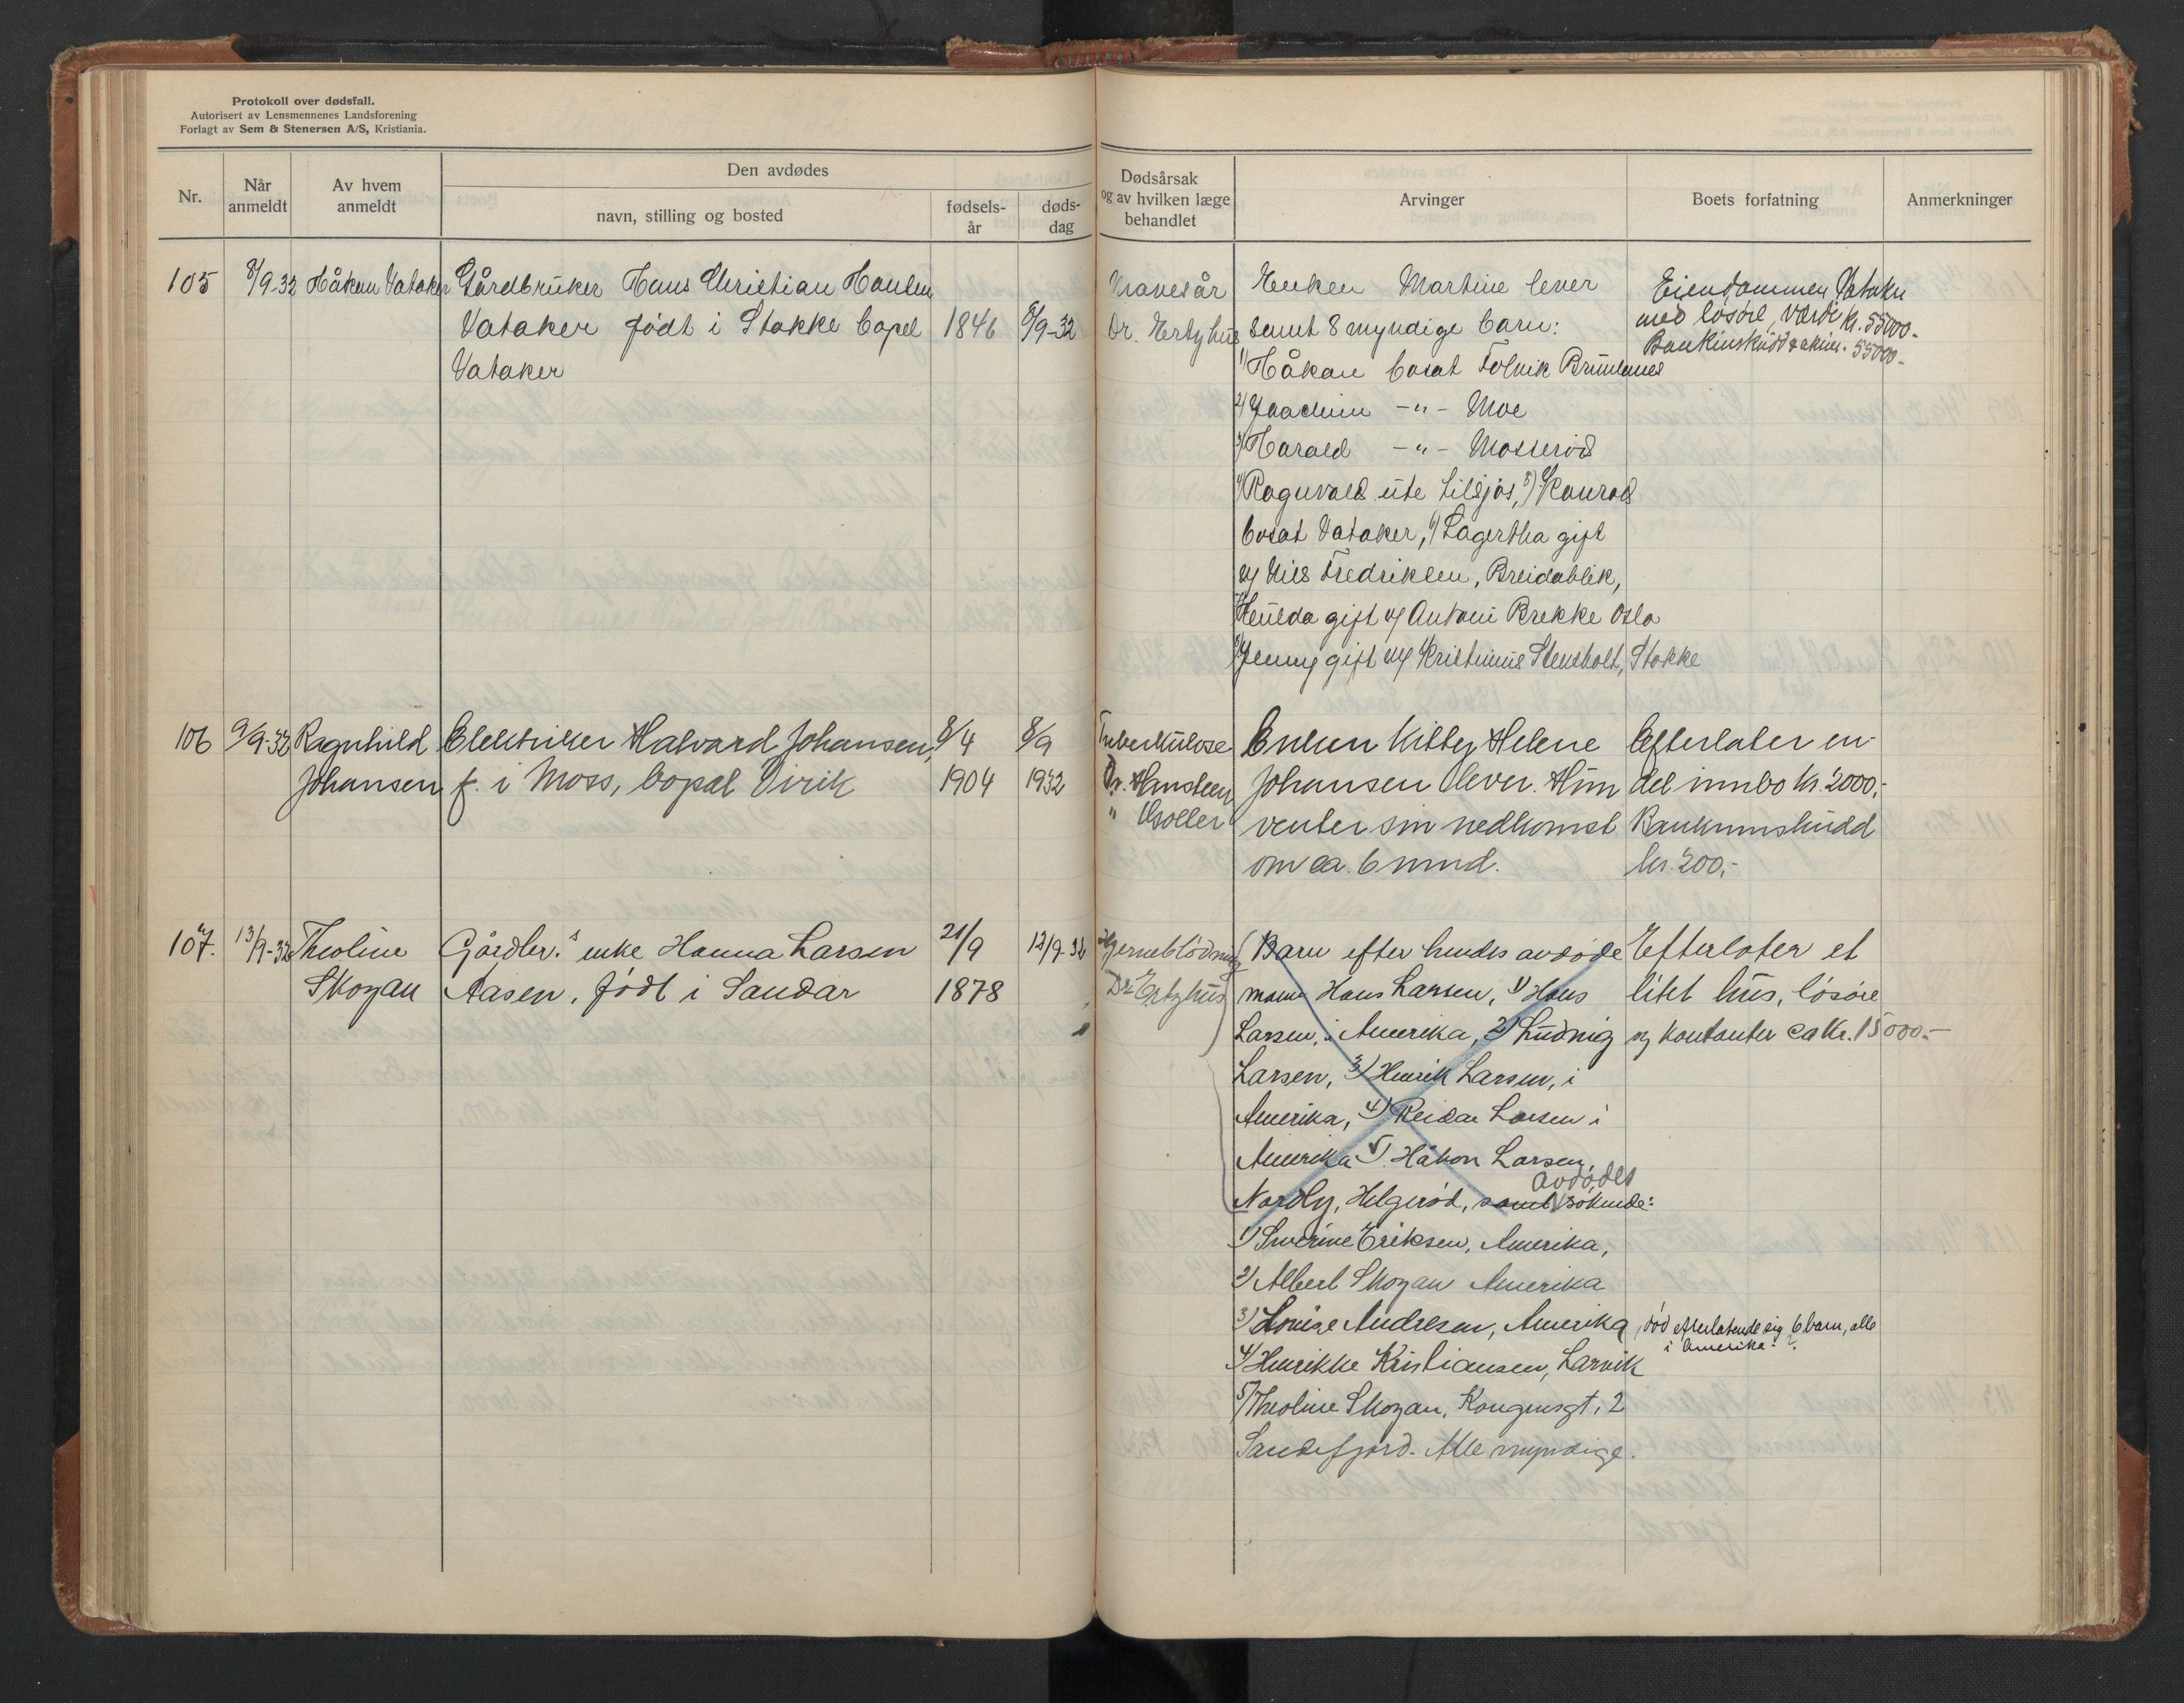 Protokoll over dødsfall.
Autorisert av Lensmennenes Landsforening
Forlagt av Sem & Stenersen A/S, Kristiania.
Nr.
Når anmeldt
Av hvem anmeldt
Den avdødes
navn, stilling og bosted
fødsels-år
døds-dag
Dødsårsak og av hvilken læge behandlet
Arvinger
Boets forfatning
Anmerkninger
105
8/9-32
Håkan Vataker
Gårdbruker Hans Christian
Vataker født i Stokke bopel
Vataker
1846
8/9-32
Dr. Ertzhus
Enken Martine lever
samt 8 myndige barn:
1) Håkan bosat Tolvik Brunlanes
2) Joachim -"- Moe
3) Harald -"- Mosserød
4) Ragnvald ute tilsjøs, 5) Konrad
bosat Vataker, 6) Lagertha gift
m/ Nils Fredriksen, Breidablik,
7) Haulda gift m/ Antoni Brekke Oslo
8) Jenny gift m/ Kristinius Stensholt, Stokke
Eiendommen Vataker
med løsøre, værdi kr. 55000.-
Bankinskudd & aksier. 55000-
106
9/9-32
Ragnhild
Johansen
Elektriker Halvard Johansen,
f. i Moss, bopæl Virik
8/4
1904
8/9
1932
Tuberkulose
Dr. Hansteen
"
Enken Kitty Helene
Johansen lever. Hun
venter sin nedkomst
om ca. 6 mnd.
Efterlater en
del innbo kr. 2000,-
Bankinnskudd
kr. 200,-
107.
13/9-32
Theoline
Skogan
Gårdbr.s enke Hanna Larsen
Aasen, født i Sandar
21/9
1878
12/9-32
Hjerneblødning
Dr Ertzhus
Barn efter hendes avdøde
mann Hans Larsen, 1) Hans
Larsen, i Amerika, 2) Ludvig
Larsen, 3) Henrik Larsen, i
Amerika, 4) Reidar Larsen i
Amerika 5) Håkon Larsen,
avdødes
Nordly, Helgerød, samt søkende:
1) Severine Eriksen, Amerika,
2) Albert Skogan Amerika
3) Louise Andresen, Amerika, død efterlatende sig 6 barn, alle
i Amerika. ?
4) Henrikke Kristiansen, Larvik
5) Theoline Skogan, Kongensgt. 2
Sandefjord. Alle myndige.
Efterlater et
litet hus, løsøre
og kontanter ca kr. 15000.-